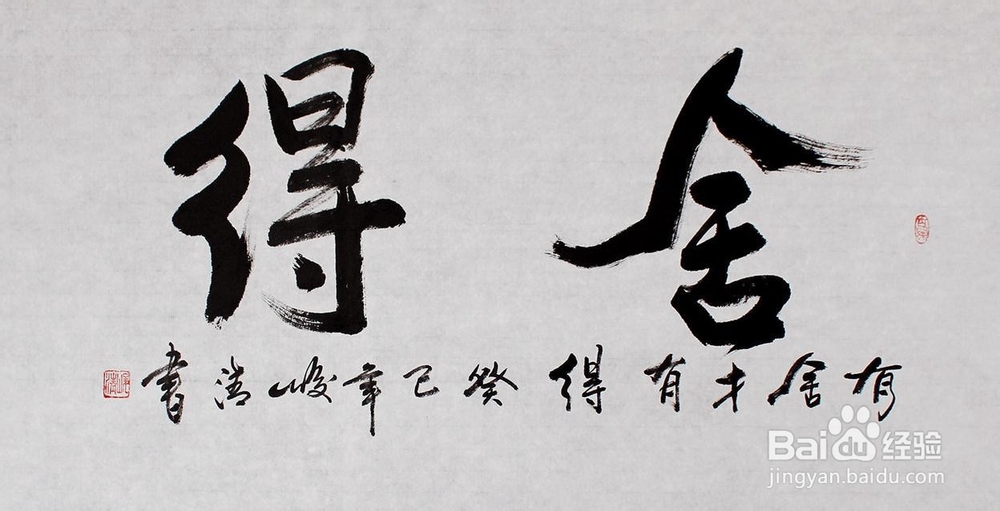 舍得
有舍才有得癸巳年峻清書
Bai du 经验
jingyan.baidu.com